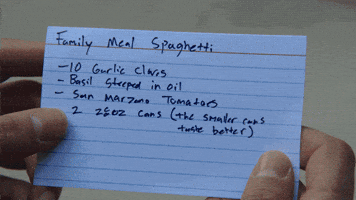 Family Meal Spaghetti
- 10 Garlic Cloves
- Basil Steeped in Oil
- San Marzano Tomatoes
2 28oz cans (the smaller cans
taste better)